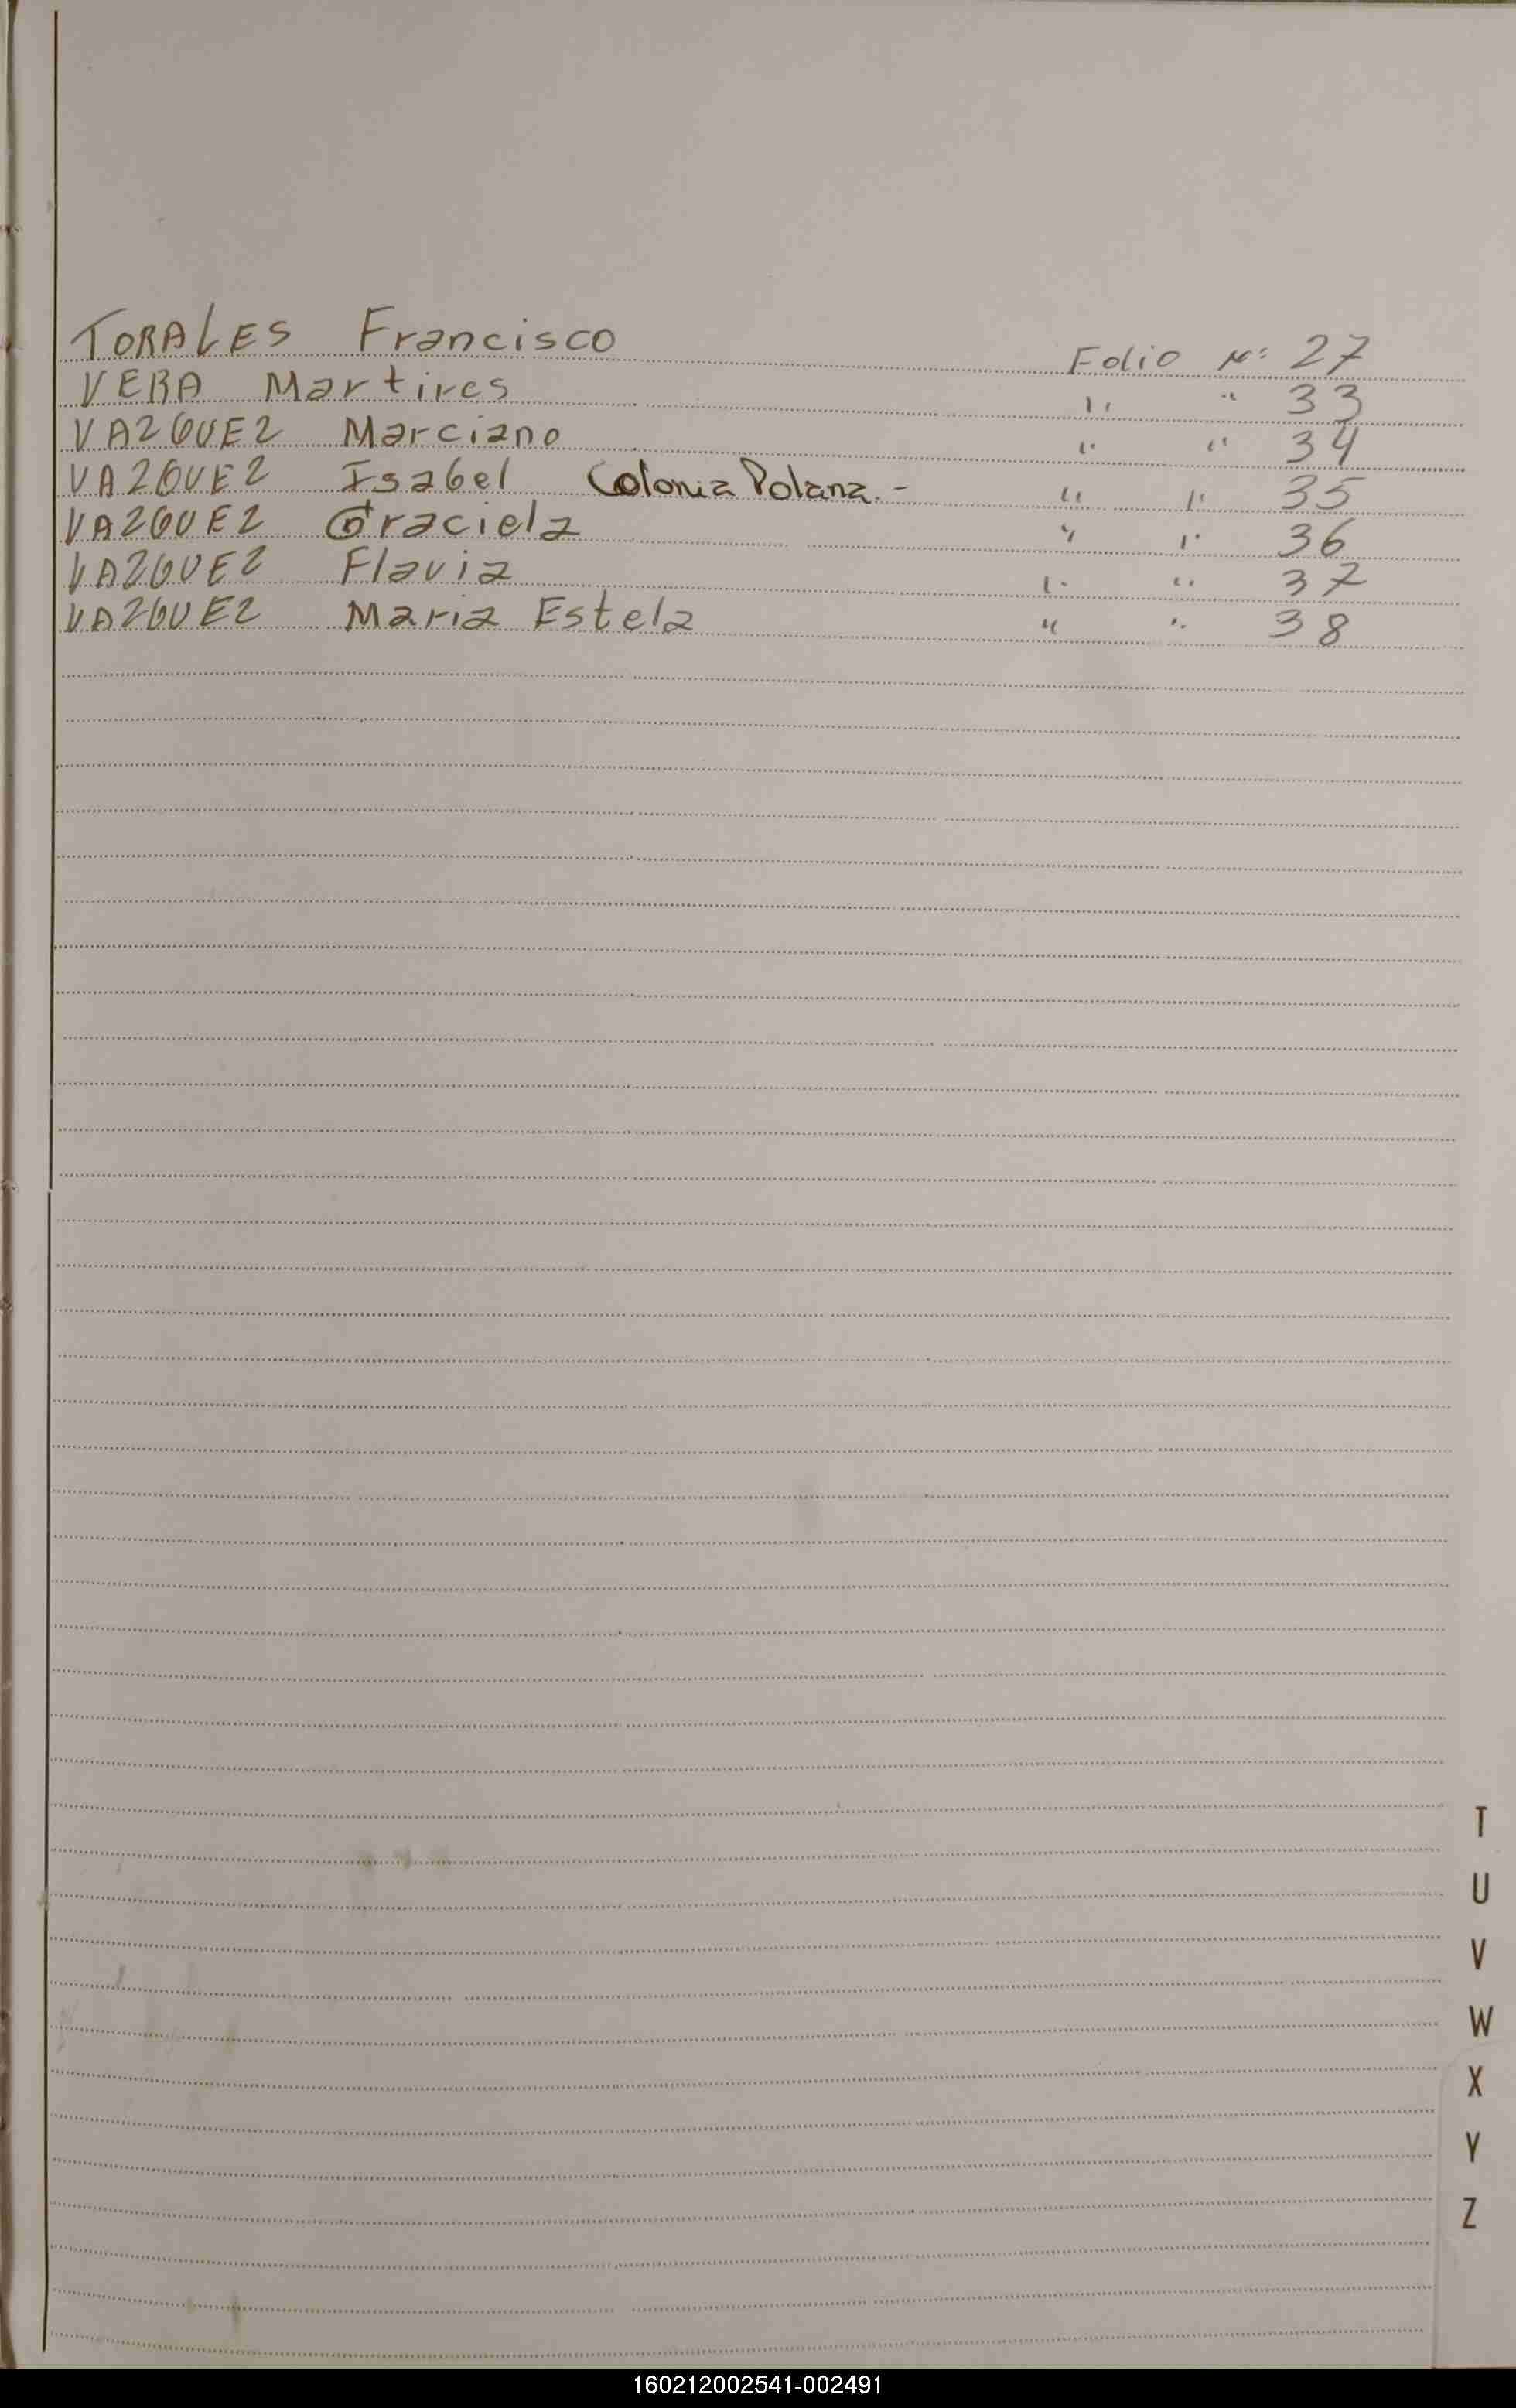 TORALES Francisco Folio Nº: 27
VERA Martires " " 33
VAZQUEZ Marciano " " 34
VAZQUEZ Isabel Colonia Polana.- " " 35
VAZQUEZ Graciela " " 36
VAZQUEZ Flavia " " 37
VAZQUEZ Maria Estela " " 38
T
U
V
W
X
Y
Z
160212002541-002491